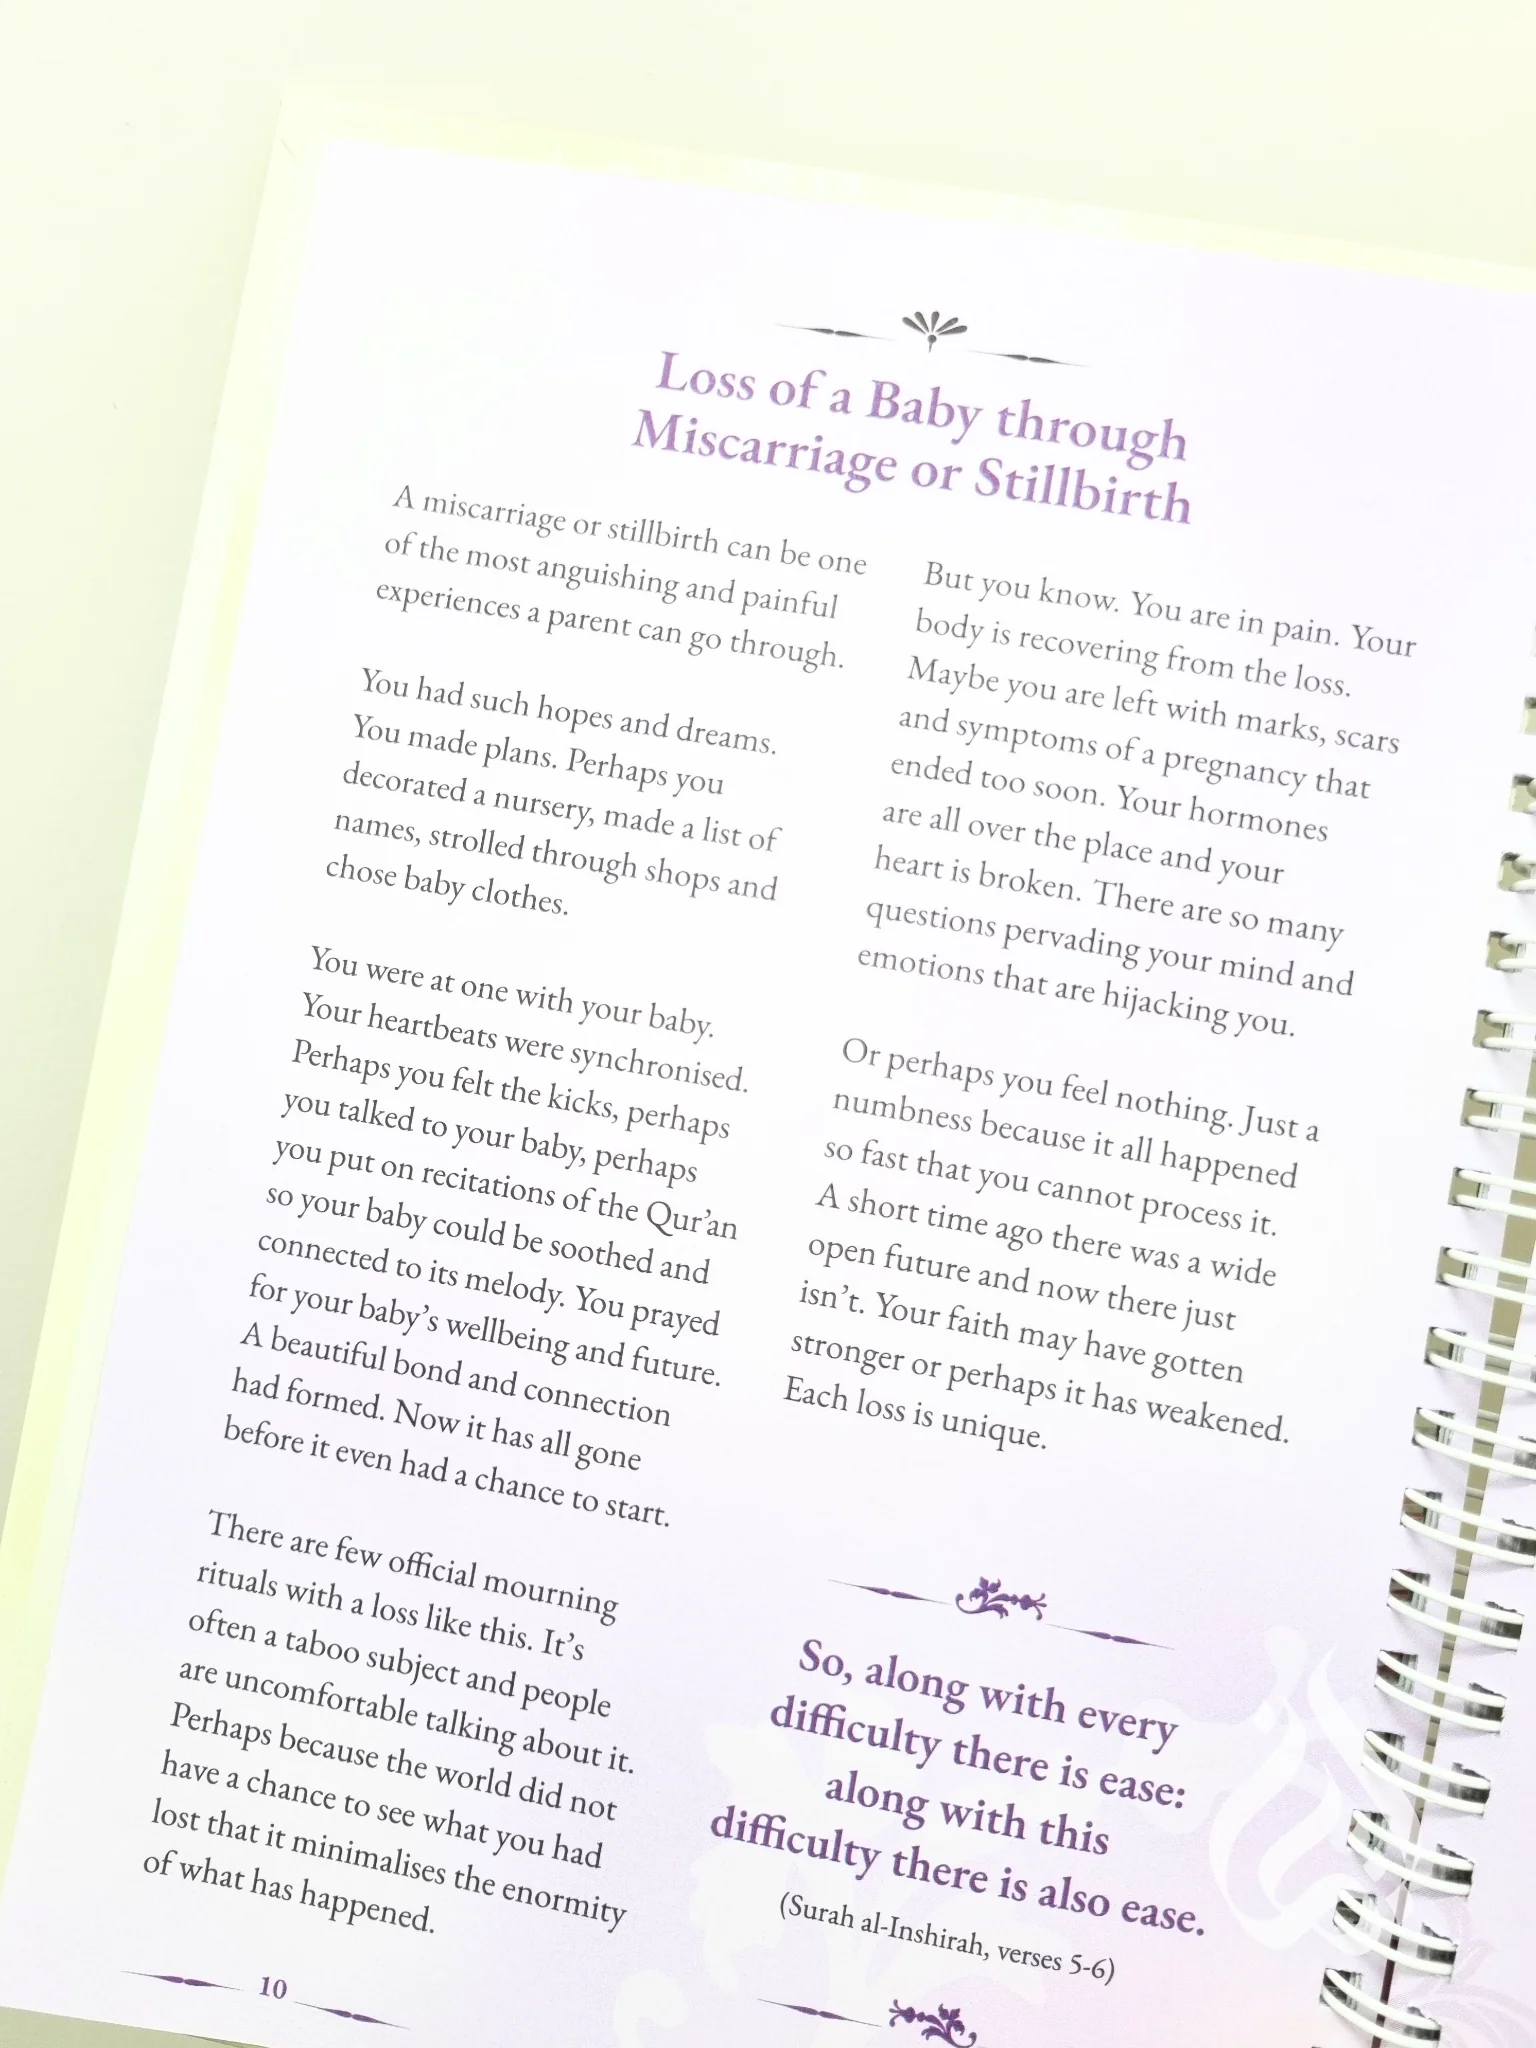 Loss of a Baby through
Miscarriage or Stillbirth
A miscarriage or stillbirth can be one
of the most anguishing and painful
experiences a parent can go through.
You had such hopes and dreams.
You made plans. Perhaps you
decorated a nursery, made a list of
names, strolled through shops and
chose baby clothes.
You were at one with your baby.
Your heartbeats were synchronised.
Perhaps you felt the kicks, perhaps
you talked to your baby, perhaps
you put on recitations of the Qur’an
so your baby could be soothed and
connected to its melody. You prayed
for your baby’s wellbeing and future.
A beautiful bond and connection
had formed. Now it has all gone
before it even had a chance to start.
There are few official mourning
rituals with a loss like this. It’s
often a taboo subject and people
are uncomfortable talking about it.
Perhaps because the world did not
have a chance to see what you had
lost that it minimalises the enormity
of what has happened.
But you know. You are in pain. Your
body is recovering from the loss.
Maybe you are left with marks, scars
and symptoms of a pregnancy that
ended too soon. Your hormones
are all over the place and your
heart is broken. There are so many
questions pervading your mind and
emotions that are hijacking you.
Or perhaps you feel nothing. Just a
numbness because it all happened
so fast that you cannot process it.
A short time ago there was a wide
open future and now there just
isn’t. Your faith may have gotten
stronger or perhaps it has weakened.
Each loss is unique.
So, along with every
difficulty there is ease:
along with this
difficulty there is also ease.
(Surah al-Inshirah, verses 5-6)
10